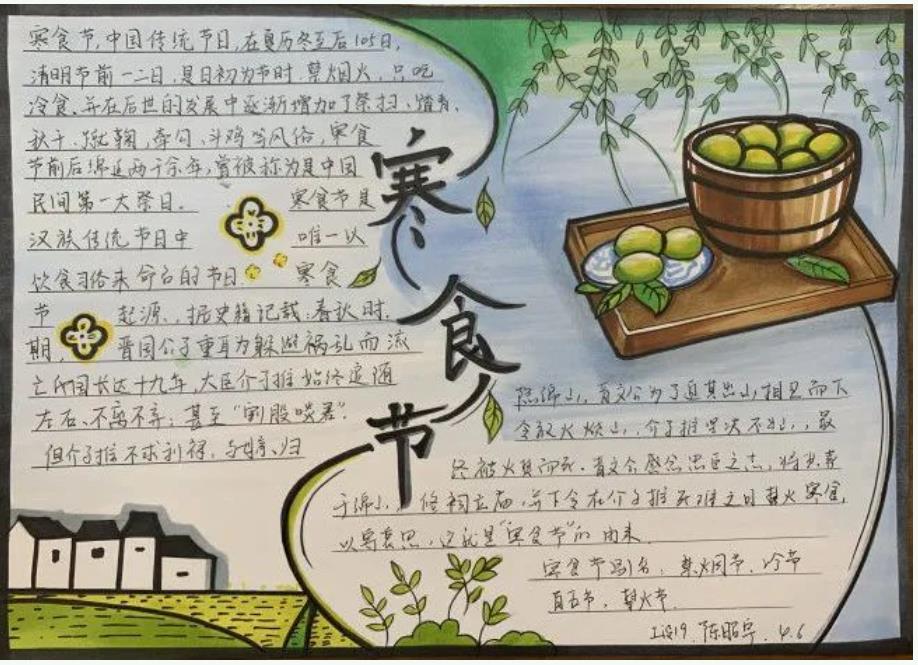 寒食节,中国传统节日,在夏历冬至后105日,
清明节前一二日,是日初为节时,禁烟火,只吃
冷食,并在后世的发展中逐渐增加了祭扫、踏青、
秋千、蹴鞠、牵勾、斗鸡等风俗,寒食
节前后绵延两千余年,曾被称为是中国
民间第一大祭日。 寒食节是
汉族传统节日中 唯一以
饮食习俗来命名的节日。 寒食
节 起源,据史籍记载:春秋时
期, 晋国公子重耳为躲避祸乱而流
亡他国长达十九年,大臣介子推始终追随
左右、不离不弃;甚至“割股啖君”。
但介子推不求利禄,与母亲归
寒食节
隐绵山,晋文公为了迫其出山相见而下
令放火烧山,介子推坚决不出山,最
终被火焚而死,晋文公感念忠臣之志,将其葬
于绵山,修祠立庙,并下令在介子推死难之日禁火寒食,
以寄哀思,这就是“寒食节”的由来。
寒食节别名:禁烟节、冷节
百五节、禁火节.
陈昭宇 4.6